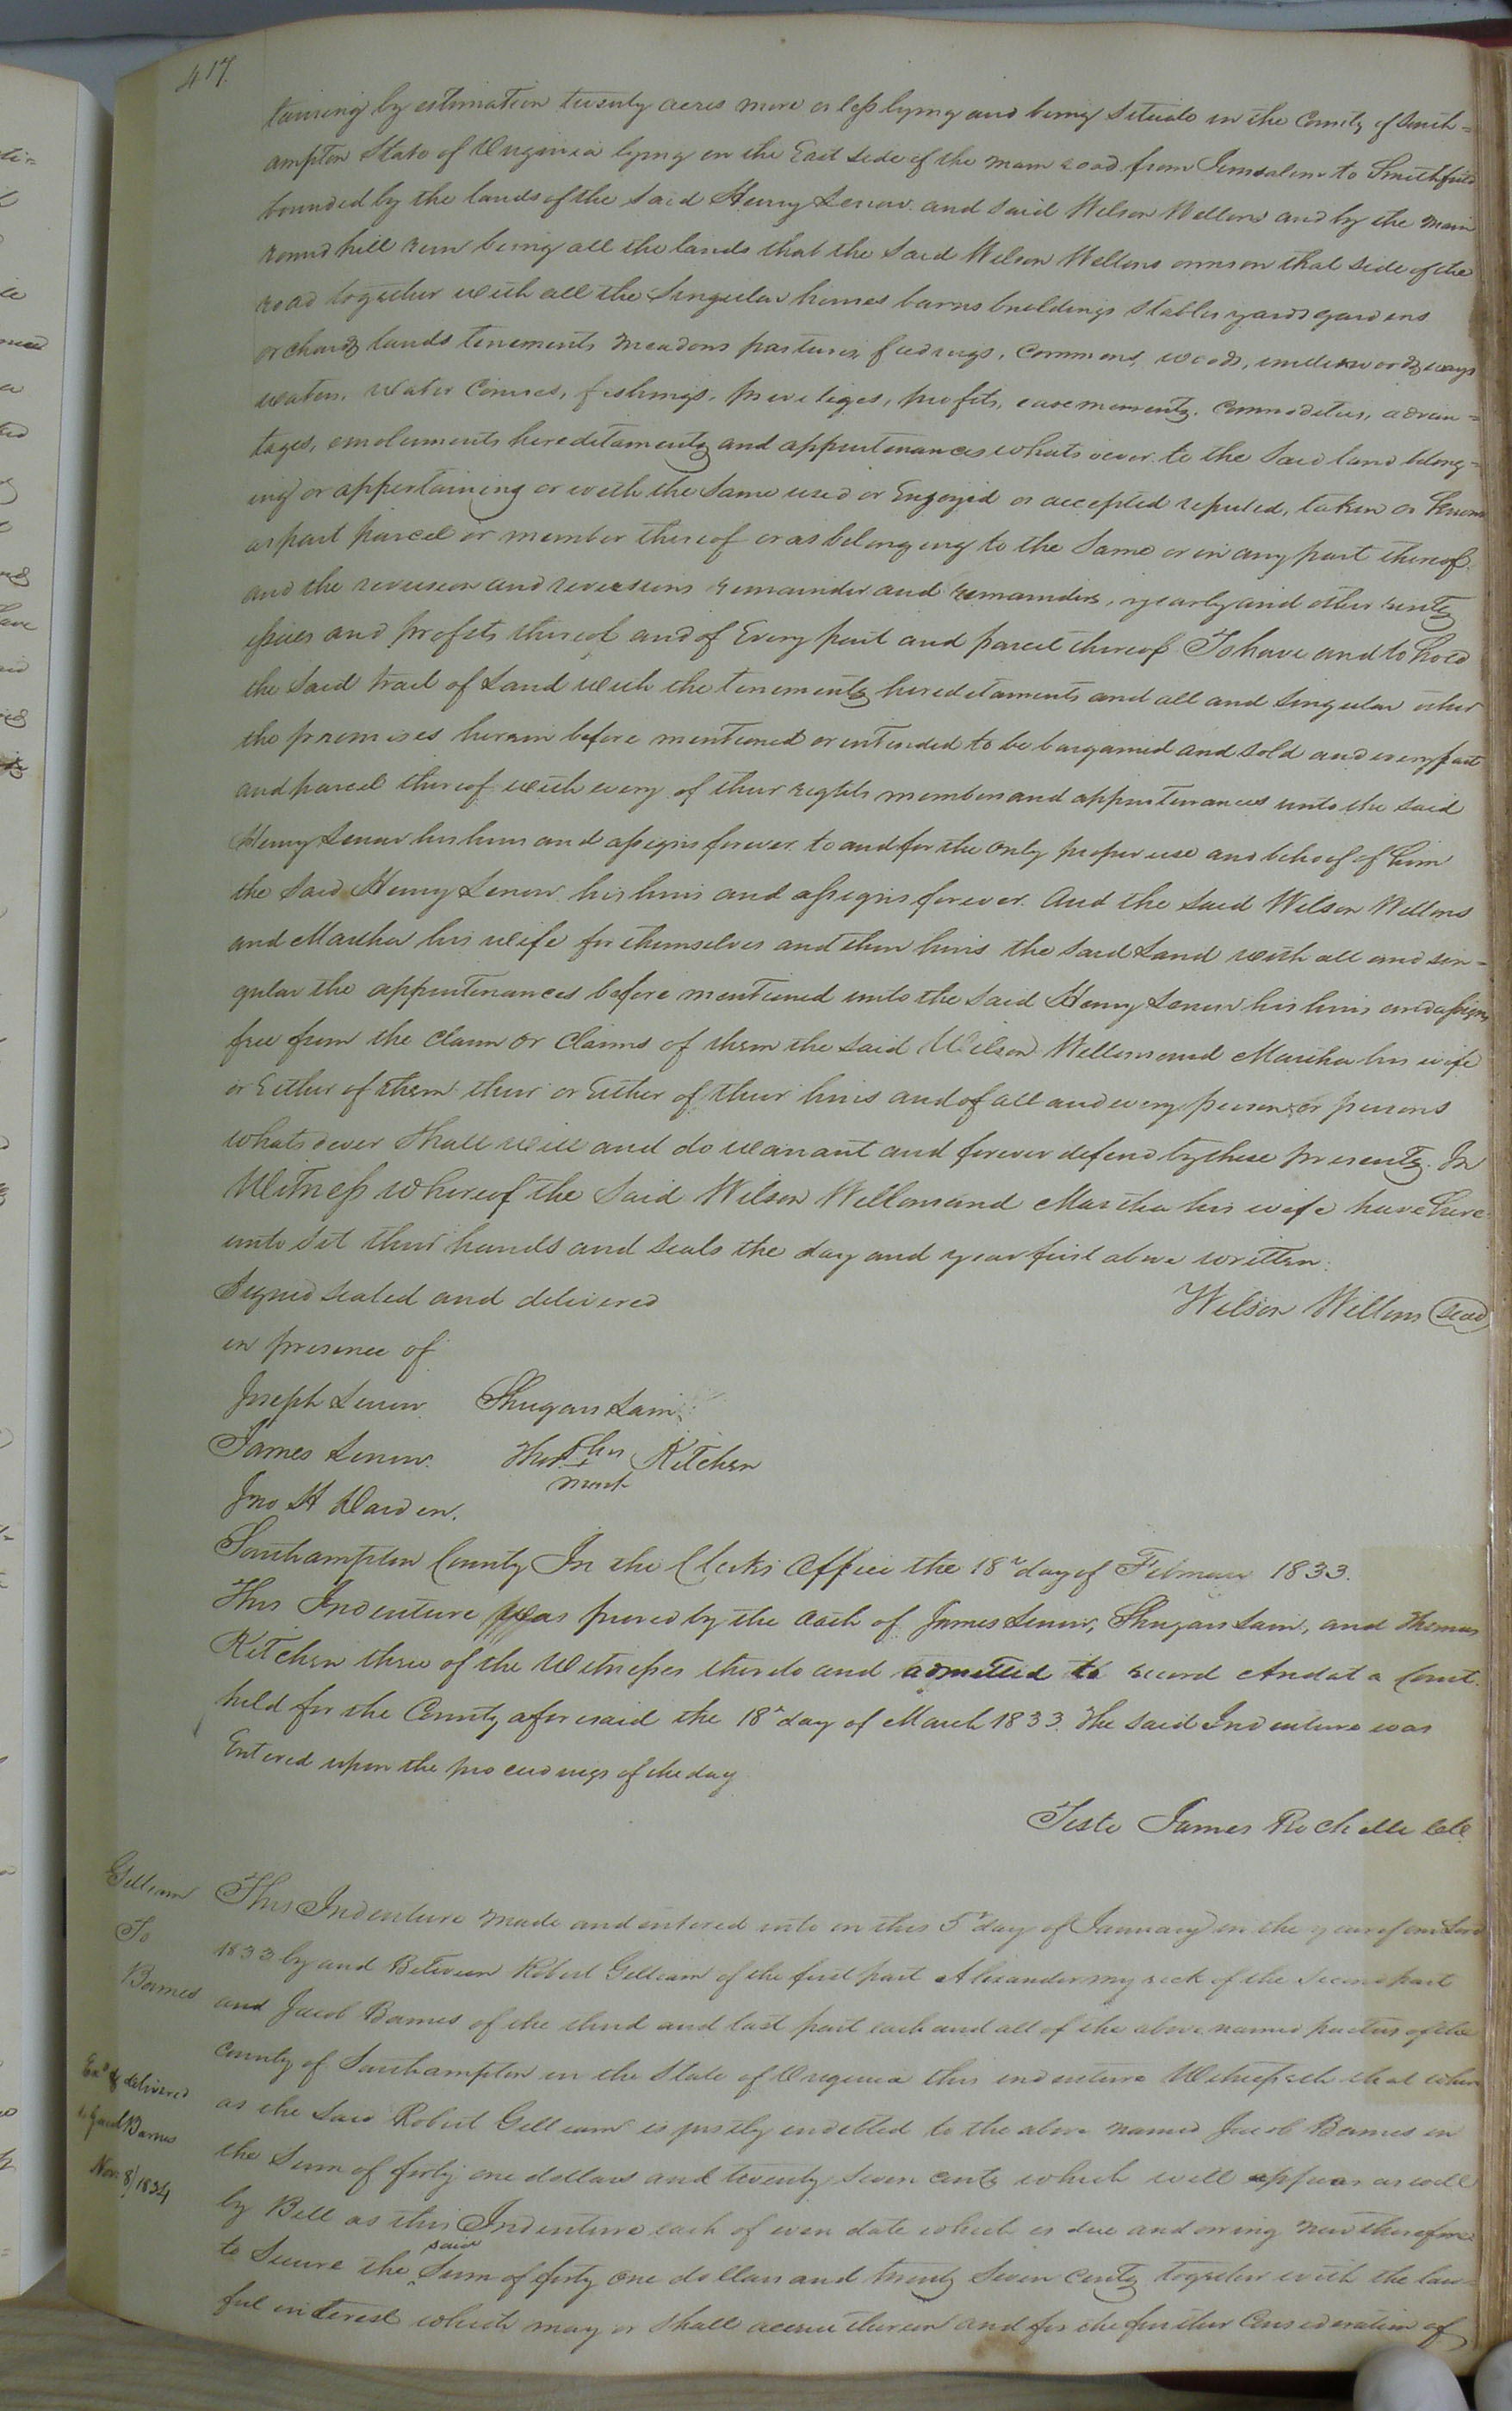 417.
taining by estimation twenty acres more or less lying and being situate in the County of South=
ampton State of Virginia lying on the East side of the main road from Jerusalem to Smithfield
bounded by the lands of the said Henry Lenow and said Wilson Wellons and by the main
round hill run being all the lands that the said Wilson Wellons owns on that side of the
road together with all the singular houses barns buildings stables yards gardens
orchards lands tenements meadows pastures feedings, commons, woods, underwoods ways
waters, water courses, fishings, priveliges, profits, easements, commodities, advan=
tages, emoluments hereditaments and appurtenances whatsoever to the said land belong=
ing or appertaining or with the same used or Enjoyed or accepted reputed, taken or known
as part parcel or member thereof or as belonging to the same or in any part thereof.
and the reversion and reversions remainder and remainders, yearly and other rents
issues and profits thereof and of Every part and parcel thereof To have and to hold
the said tract of Land with the tenements hereditaments and all and singular other
the premises herein before mentioned or intended to be bargained and sold and every part
and parcel thereof with every of their rights members and appurtenances unto the said
Henry Lenow his heirs and assigns forever to and for the only proper use and behoof of him
the said Henry Lenow his heirs and assigns forever. And the said Wilson Wellons
and Martha his wife for themselves and their heirs the said Land with all and sin=
gular the appurtenances before mentioned unto the said Henry Lenow his heirs and assigns
free from the claim or claims of them the said Wilson Wellons and Martha his wife
or Either of them their or Either of their heirs and of all and every person or persons
whatsoever shall will and do warrant and forever defend by these presents. In
Witness whereof the said Wilson Wellons and Martha his wife have here
unto set their hands and seals the day and year first above written.
Signed sealed and delivered Wilson Wellons seal
in presence of
Joseph Lenow Shugars Lain
James Lenow. Thos his + mark Kitchen
Jno H Darden.
Southampton County In the Clerks Office the 18th day of February 1833.
This Indenture was proved by the Oath of James Lenow, Shugars Lain, and Thomas
Kitchen three of the Witnesses thereto and admitted to record And at a Court
held for the County aforesaid the 18th day of March 1833. The said Indenture was
Entered upon the proceedings of the day
Teste James Rochelle Clk
Gilliam
To
Barnes
Exd & delivered
to Jacob Barnes
Nov 8/1834
This Indenture made and entered into on this 5th day of January in the year of our Lord
1833 by and Between Robert Gilliam of the first part Alexander Myrick of the second part
and Jacob Barnes of the third and last part each and all of the above named parties of the
County of Southampton in the State of Virginia this indenture Witnesseth that where
as the said Robert Gilliam is justly indebted to the above named Jacob Barnes in
the Sum of forty one dollars and twenty seven cents which will appear as well
by Bill as this Indenture each of even date which is due and owing now therefore
to Secure the said Sum of forty one dollars and twenty seven cents together with the law=
ful interest which may or shall accrue thereon and for the further Consideration of